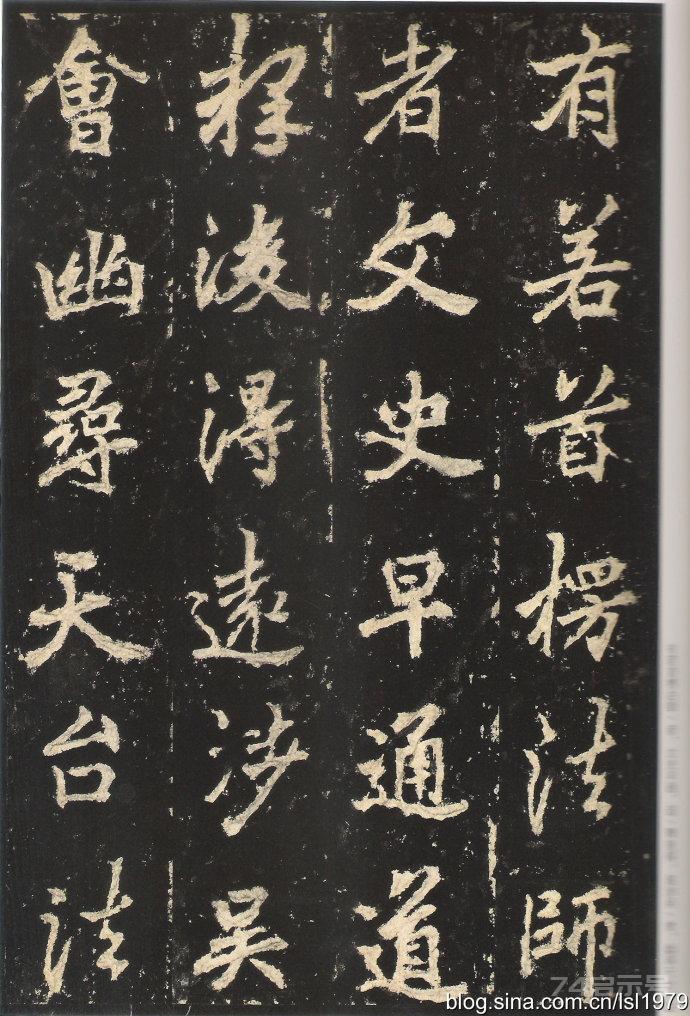 有若首楞法師
者文史早通道
釋浚得遠涉吳
會幽尋天台法
blog.sina.com.cn/lsl1979